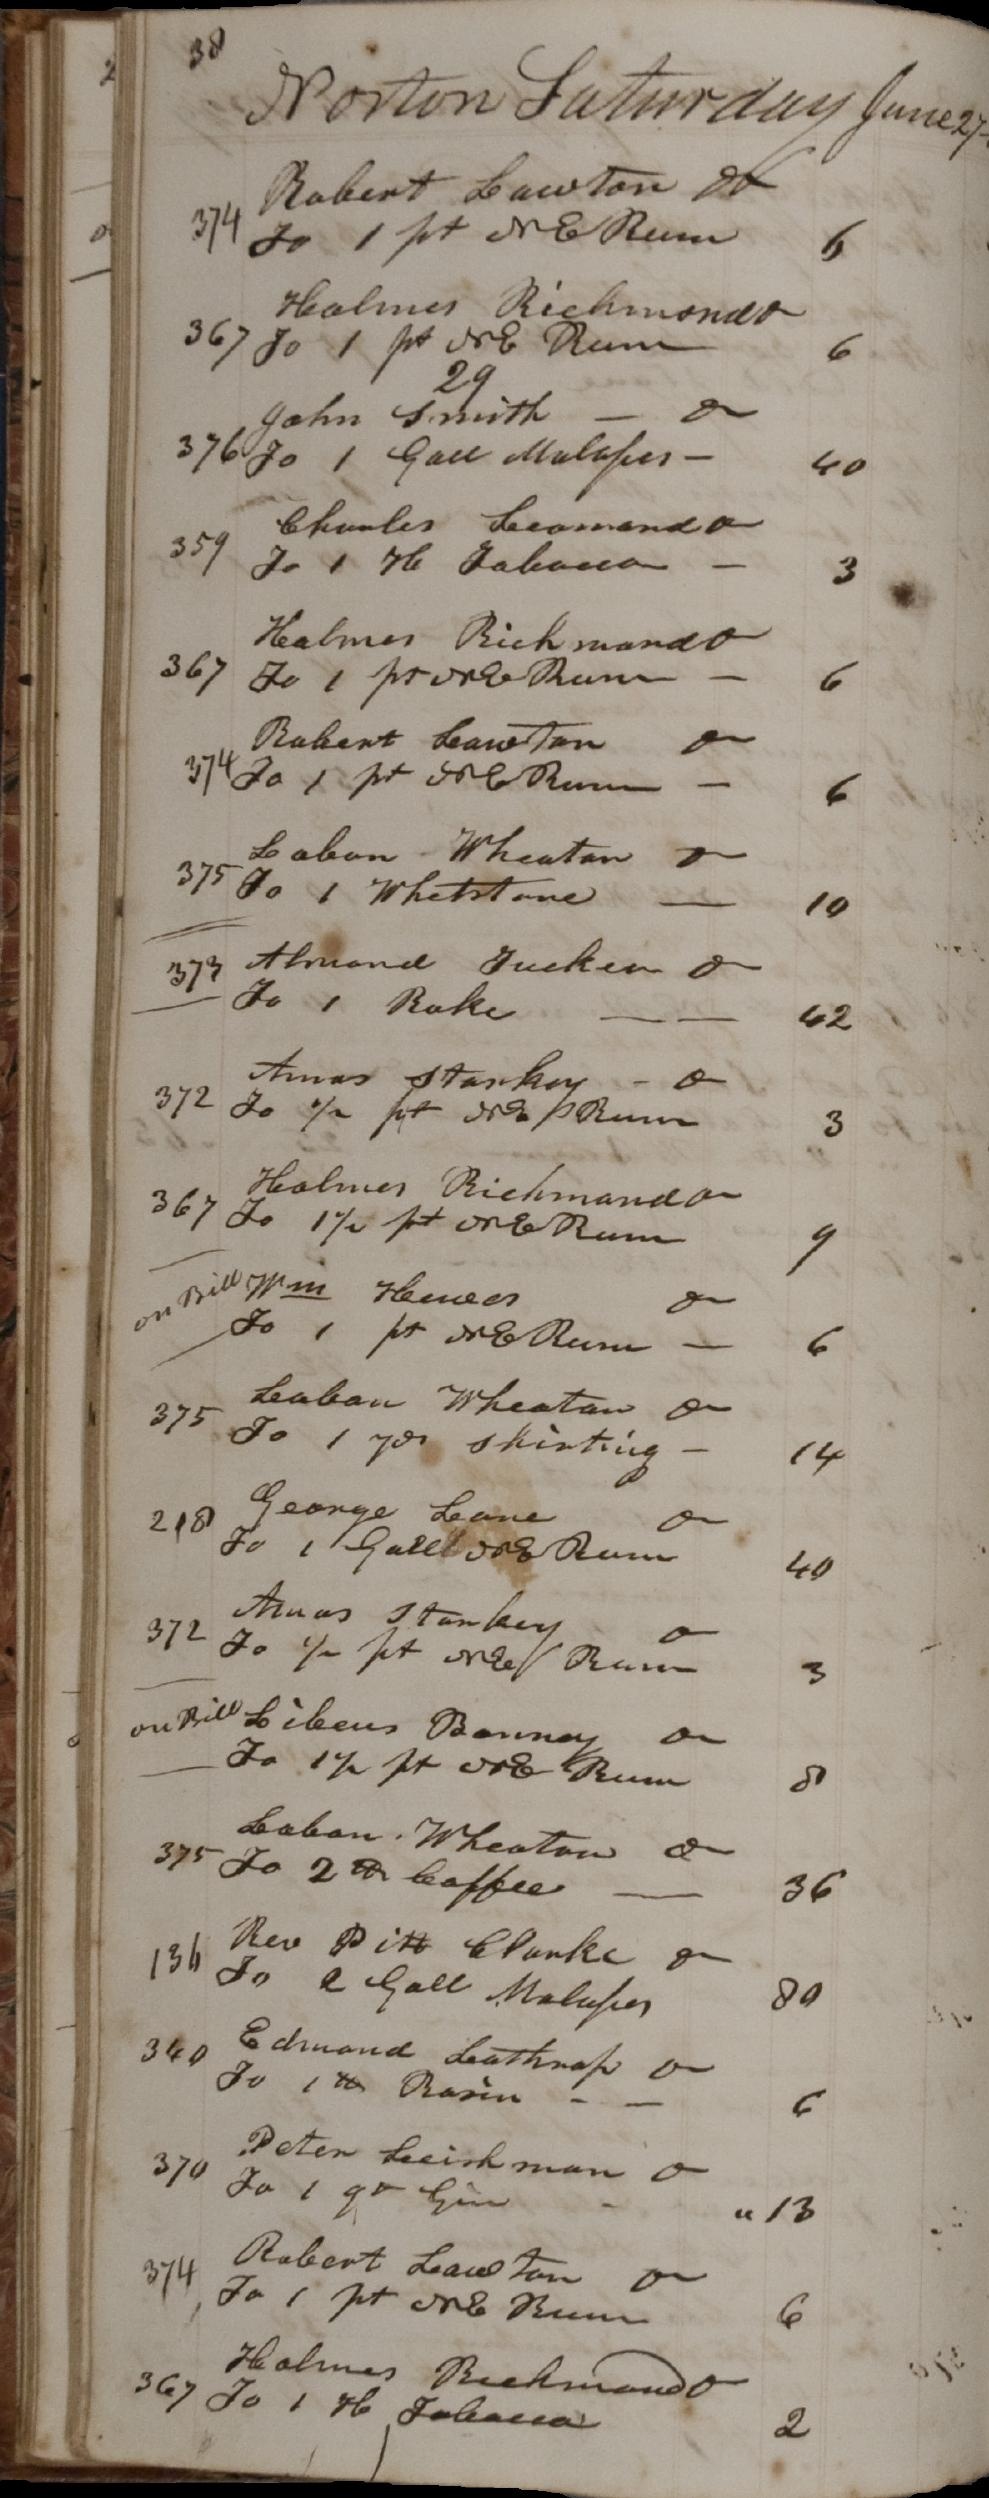 38
Norton Saturday June 27
Robert Lawton Dr
374 To 1 pt NE Rum 6
Holmes Richmond Dr
367 To 1 pt NE Rum 6
29
John Smith — Dr
376 To 1 Gall Molasses — 40
Charles Leomand Dr
359 To 1 Tobacco — 3
Holmes Richmond Dr
367 To 1 pt NE Rum — 6
Robert Lawton Dr
374 To 1 pt NE Rum — 6
Laban Wheaton Dr
375 To 1 Whetstone — 10
373 Almond Tucker Dr
To 1 Rake — — 42
Amos Starkey - Dr
372 To 1/2 pt NE Rum 3
Holmes Richmond Dr
367 To 1 1/2 pt NE Rum 9
on Bill Wm Dr
To 1 pt NE Rum — 6
Laban Wheaton Dr
375 To 1 yd Shirting — 14
George Lane Dr
218 To 1 Gall NE Rum 40
Amos Starkey Dr
372 To 1/2 pt NE Rum 3
on Bill Libeus Bonney Dr
To 1 1/2 pt NE Rum 8
Laban Wheaton Dr
375 To 2 lb Coffee — 36
Rev Pitt Clarke Dr
136 To 2 Gall Molasses 80
Edmond Lathrop Dr
340 To 1 lb Rasin - — 6
Peter Leishman Dr
370 To 1 qt Gin - " 13
Robert Lawton Dr
374 To 1 pt NE Rum 6
Holmes Richmond Dr
367 To 1 Tobacco 2